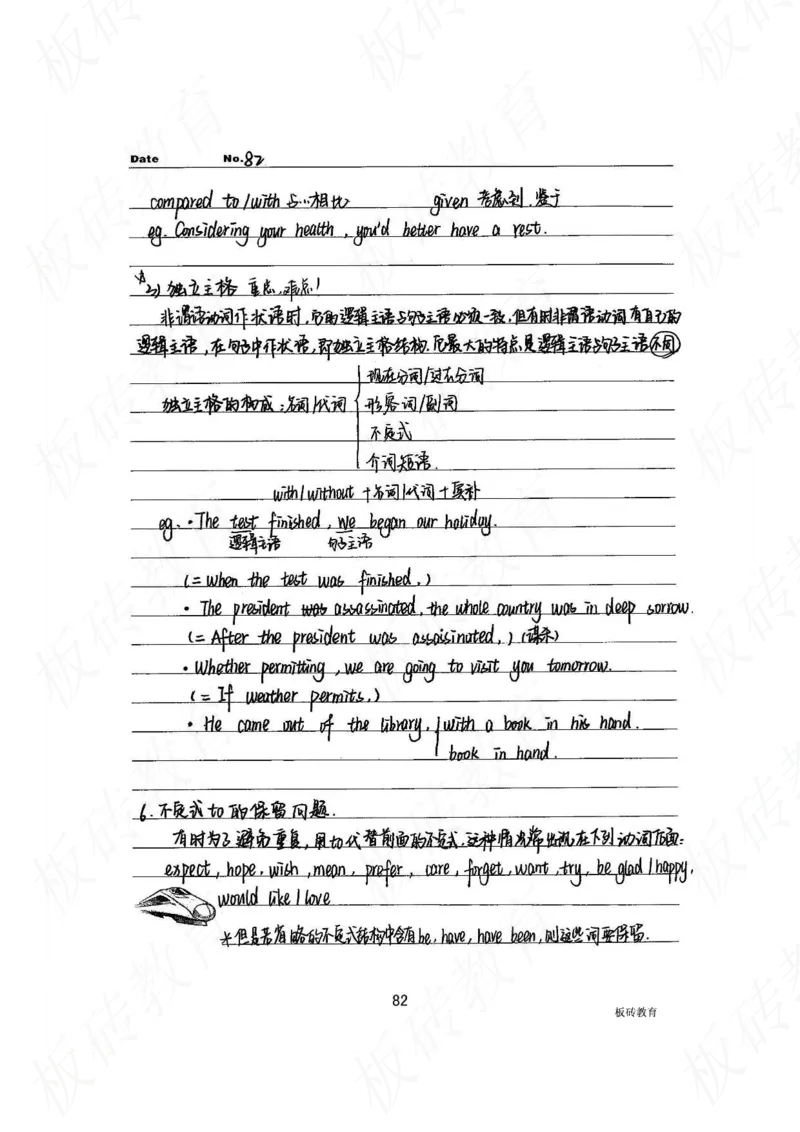 Date No.82
compared to/with 与…相比 given 考虑到,鉴于
eg. Considering your health, you'd better have a rest.
☆2) 独立主格 重点,难点!
非谓语动词作状语时,它的逻辑主语与句子主语必须一致,但有时非谓语动词有自己的
逻辑主语,在句子中作状语,即独立主格结构.它最大的特点是逻辑主语与句子主语不同
现在分词/过去分词
独立主格的构成:名词/代词 形容词/副词
不定式
介词短语.
with/without +名词/代词+宾补
eg. · The test finished, we began our holiday.
逻辑主语 句子主语
(= When the test was finished,)
· The president was assassinated, the whole country was in deep sorrow.
(= After the president was assassinated,) (谋杀)
· Whether permitting, we are going to visit you tomorrow.
(= If weather permits,)
· He came out of the library, with a book in his hand.
book in hand.
6. 不定式to的保留问题.
有时为了避免重复,用to代替前面的不定式,这种情况常出现在下列动词后面:
expect, hope, wish, mean, prefer, care, forget, want, try, be glad/happy,
would like/love
*但是若省略的不定式结构中含有be, have, have been, 则这些词要保留.
82
板砖教育